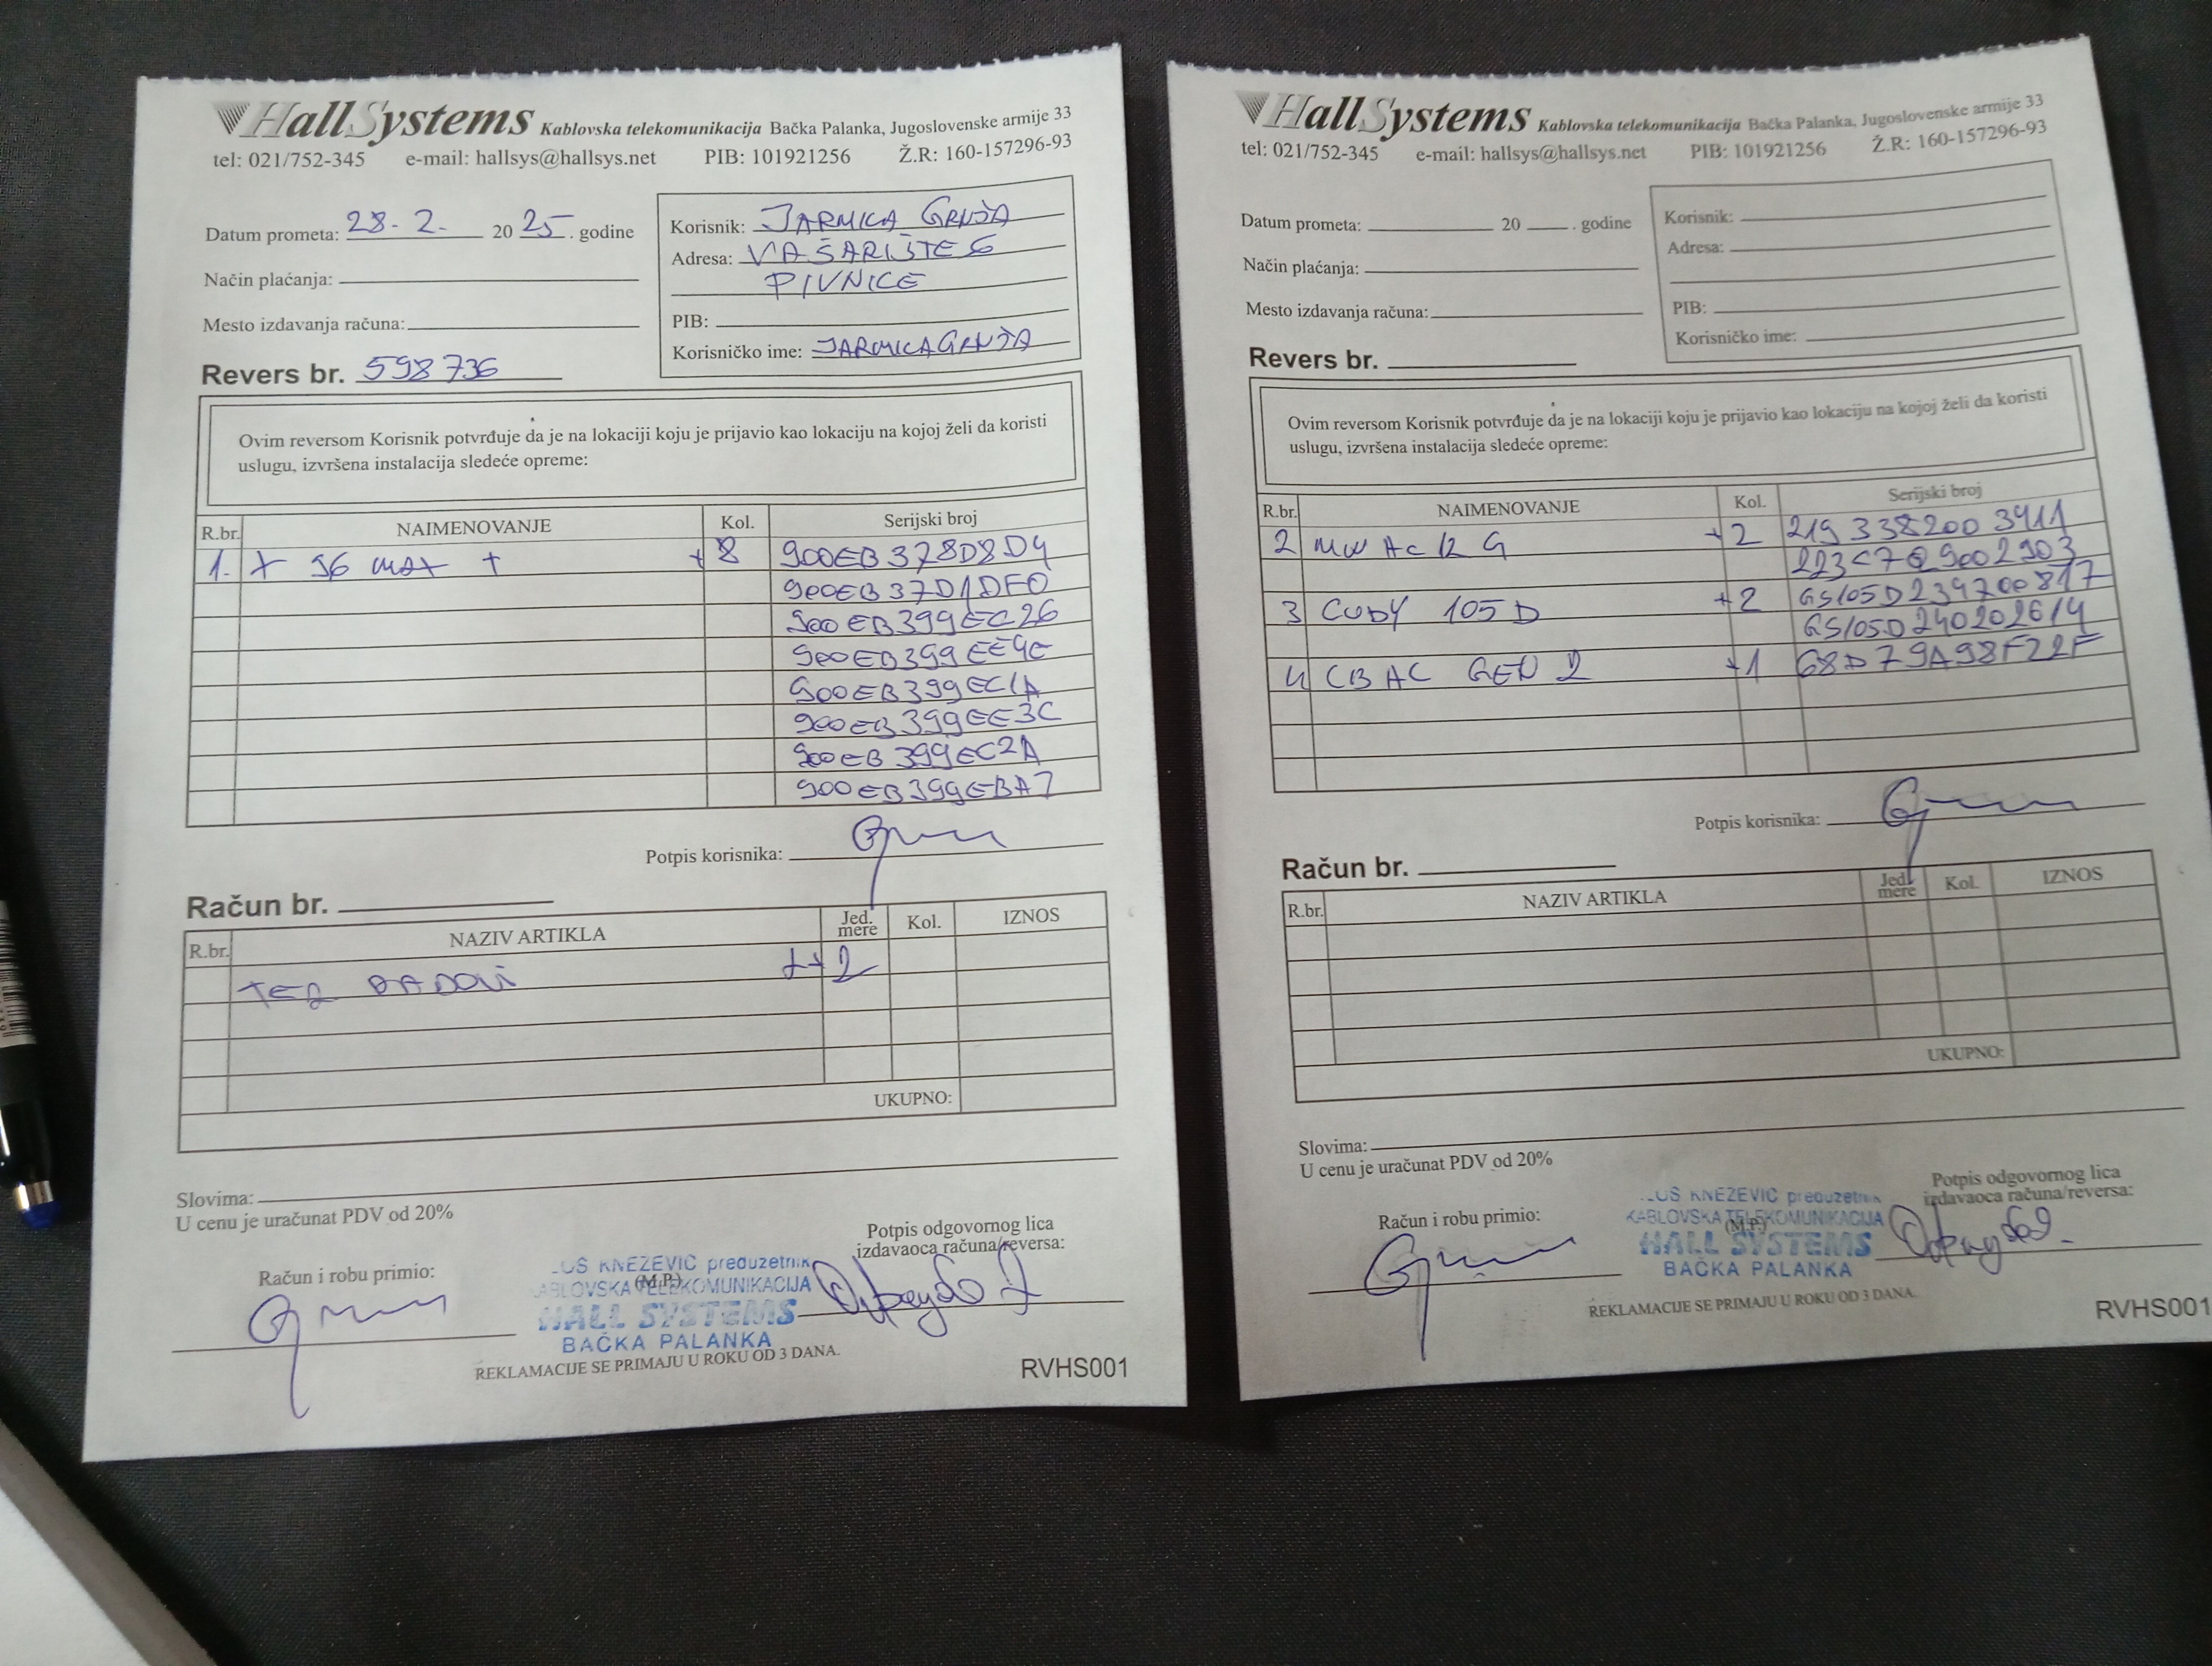 HallSystems Kablovska telekomunikacija Bačka Palanka, Jugoslovenske armije 33
tel: 021/752-345 e-mail: hallsys@hallsys.net PIB: 101921256 Ž.R: 160-157296-93
Datum prometa: 28. 2. 2025. godine
Način plaćanja:
Mesto izdavanja računa:
Revers br. 598736
Korisnik: JARMICA GRUJA
Adresa: VAŠARIŠTE 6
PIVNICE
PIB:
Korisničko ime: JARMICAGRUJA
Ovim reversom Korisnik potvrđuje da je na lokaciji koju je prijavio kao lokaciju na kojoj želi da koristi
uslugu, izvršena instalacija sledeće opreme:
R.br. NAIMENOVANJE Kol. Serijski broj
1. X 96 MAX + +8 900EB378D8D4
900EB37D1DF0
900EB399EC26
900EB399EE4E
900EB399EC1A
900EB399EE3C
900EB399EC2A
900EB399EBA7
Potpis korisnika:
Račun br.
R.br. NAZIV ARTIKLA Jed. mere Kol. IZNOS
TER RADOVI ++2
UKUPNO:
Slovima:
U cenu je uračunat PDV od 20%
Račun i robu primio:
(M.P.)
Potpis odgovornog lica
izdavaoca računa/reversa:
KNEŽEVIĆ preduzetnik
TELEKOMUNIKACIJA
HALL SYSTEMS
BAČKA PALANKA
REKLAMACIJE SE PRIMAJU U ROKU OD 3 DANA.
RVHS001
HallSystems Kablovska telekomunikacija Bačka Palanka, Jugoslovenske armije 33
tel: 021/752-345 e-mail: hallsys@hallsys.net PIB: 101921256 Ž.R: 160-157296-93
Datum prometa: 20 . godine
Način plaćanja:
Mesto izdavanja računa:
Revers br.
Korisnik:
Adresa:
PIB:
Korisničko ime:
Ovim reversom Korisnik potvrđuje da je na lokaciji koju je prijavio kao lokaciju na kojoj želi da koristi
uslugu, izvršena instalacija sledeće opreme:
R.br. NAIMENOVANJE Kol. Serijski broj
2 MW AC12 G +2 219 338200 3411
223C7Q9002903
3 CUDY 105D +2 GS105D234700817
GS105D240202614
4 CB AC GEN 2 +1 68D79A98F22F
Potpis korisnika:
Račun br.
R.br. NAZIV ARTIKLA Jed. mere Kol. IZNOS
UKUPNO:
Slovima:
U cenu je uračunat PDV od 20%
Račun i robu primio:
(M.P.)
Potpis odgovornog lica
izdavaoca računa/reversa:
KNEŽEVIĆ preduzetnik
KABLOVSKA TELEKOMUNIKACIJA
HALL SYSTEMS
BAČKA PALANKA
REKLAMACIJE SE PRIMAJU U ROKU OD 3 DANA.
RVHS001